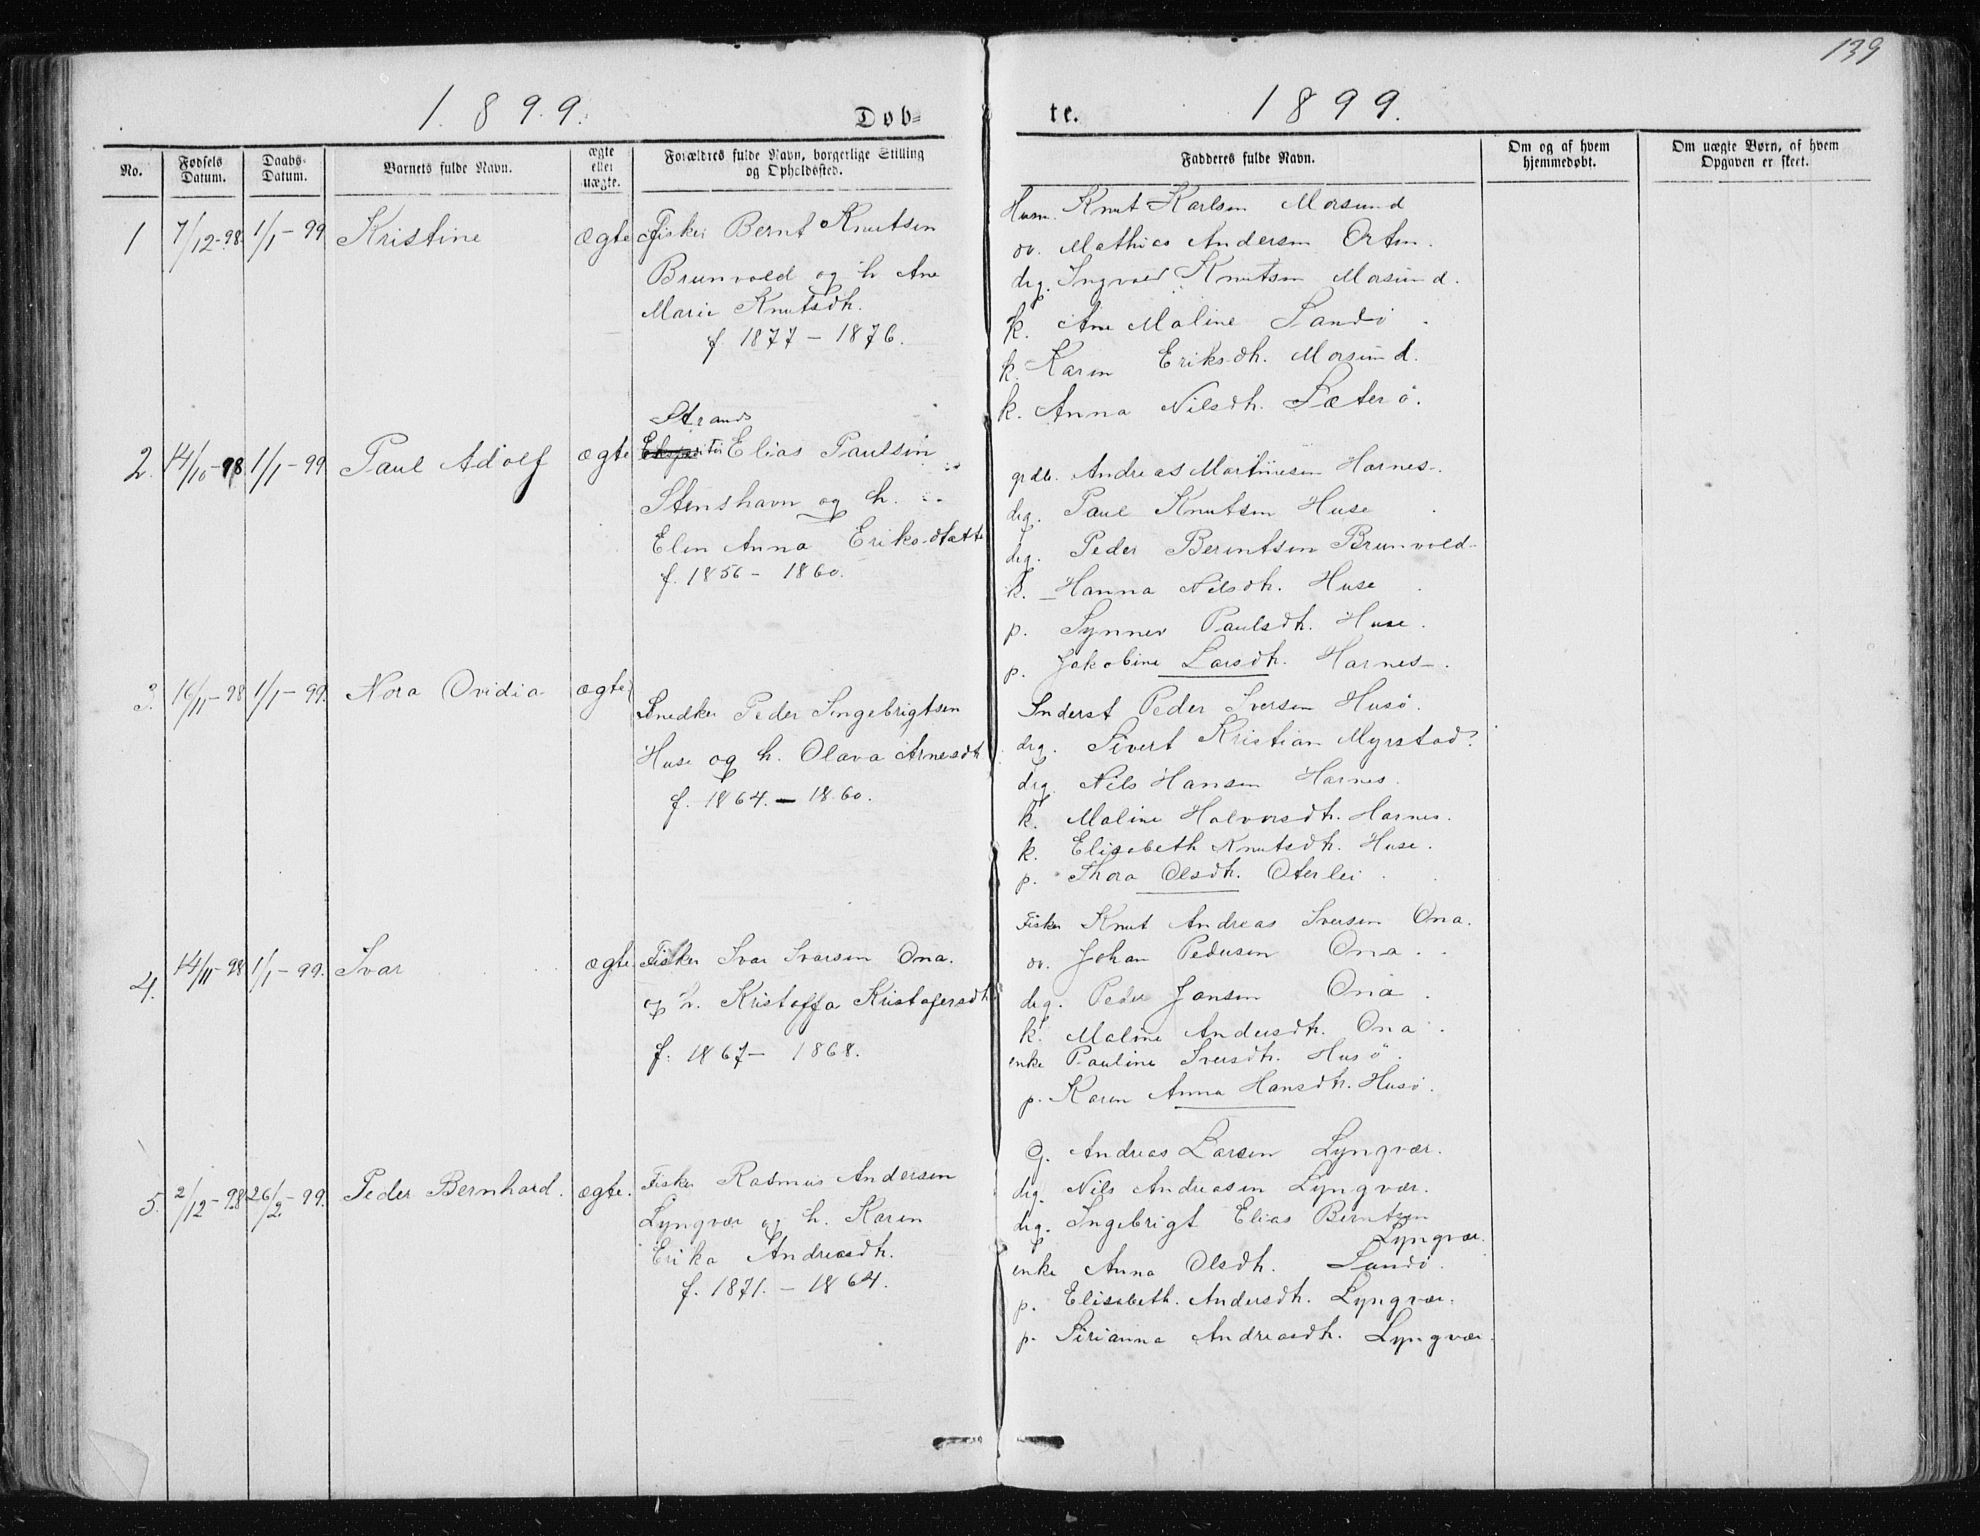 139
1899.
Døb=
te.
1899.
No.
Fødsels Datum.
Daabs- Datum.
Barnets fulde Navn.
ægte eller uægte.
Forældres fulde Navn, borgerlige Stilling og Opholdssted.
Fadderes fulde Navn.
Om og af hvem hjemmedøbt.
Om uægte Børn, af hvem Opgaven er skeet.
1 7/12-98 1/1-99 Kristine ægte Fisker Bernt Knutsen
Brunvold og h. Ane
Marie Knutsdtr.
f. 1877 - 1876.
Husm. Knut Karlsen Morsund
Mathias Andersen Orten.
drg. Ingvald Knutsen Morsund.
k. Ane Maline Sandø.
k. Karen Eriksdtr. Morsund.
k. Anna Nilsdtr. Sæterø.
2. 14/10-98 1/1-99 Paul Adolf ægte
Strand
siter Elias Paulsen
Stenshavn og h.
Elen Anna Eriksdatte
f. 1856 - 1860.
grdb. Andreas Martinesen Harnes.
drg. Paul Knutsen Huse
drg. Peder Berentsen Brunvold
k. Hanna Nilsdtr. Huse
p. Synnev Paulsdtr. Huse.
p. Jakobine Larsdtr. Harnes.
3. 16/11-98 1/1-99. Nora Ovidia ægte
Snedker Peder Ingebrigtsen
Huse og h. Olava Arnesdtr
f. 1864. - 1860.
Inderst Peder Iversen Husø.
drg. Sivert Kristian Myrstad?
drg. Nils Hansen Harnes.
k. Maline Halvorsdtr. Harnes.
k. Elisabeth Knutsdtr. Huse.
p. Thora Olsdtr. Oterlei.
4. 14/11-98 1/1-99. Ivar ægte. Fisker Ivar Ivarsen Ona.
og h. Kristoffa Kristofersdtr
f. 1867 - 1868.
Fisker Knut Andreas Iversen Ona.
Johan Pedersen Ona.
drg. Peder Jonsen Ona.
k. Maline Andersdtr. Ona.
enke Pauline Iversdtr. Husø.
p. Karen Anna Hansdtr. Husø.
5. 2/12-98 26/2-99. Peder Bernhard. ægte. Fisker Rasmus Andersen
Lyngvær og h. Karen
Erika Andreasdtr.
f. 1871. - 1864.
g. Andreas Larsen Lyngvær.
drg. Nils Andreasen Lyngvær.
drg. Ingebrigt Elias Berntsen
Lyngvær.
enke Anna Olsdtr. Sandø.
p. Elisabeth. Andersdtr. Lyngvær.
p. Sirianna Andreasdtr. Lyngvær.